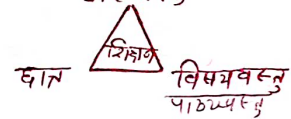 शिक्षण
छात्र विषयवस्तु
पाठ्यवस्तु